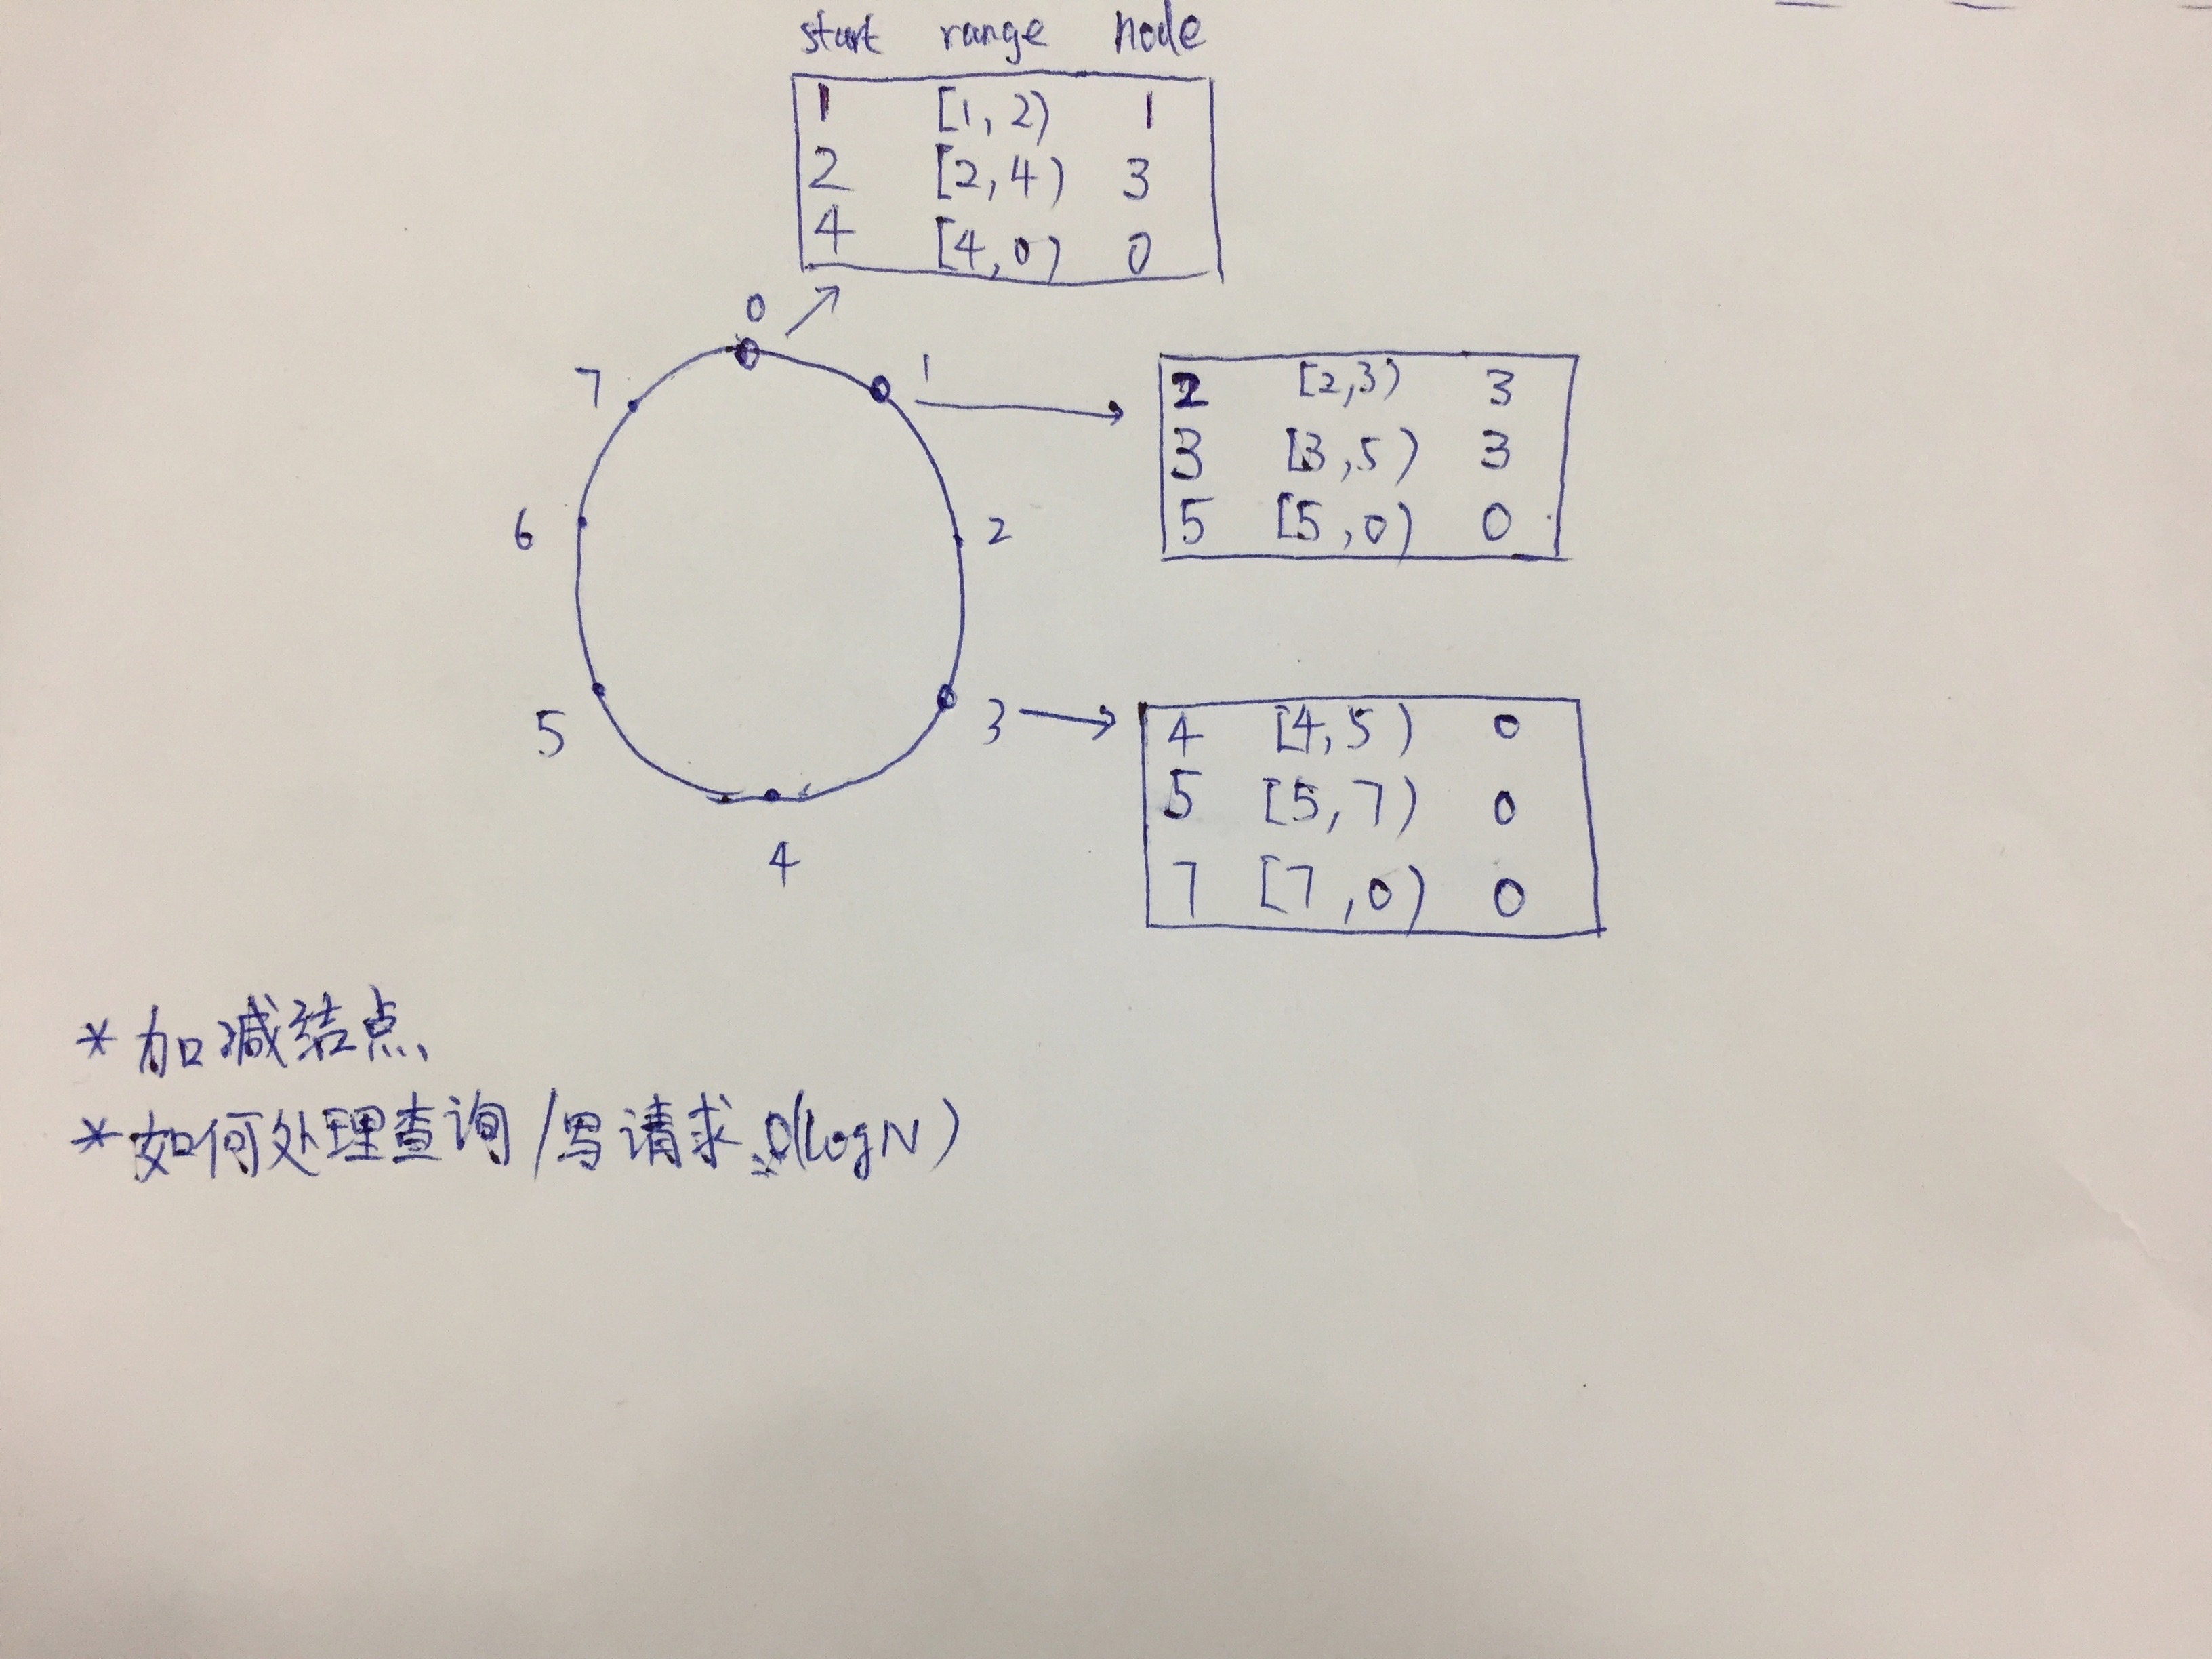 start range node
1 [1, 2) 1
2 [2, 4) 3
4 [4, 0) 0
0
1
7
2 [2,3) 3
3 [3,5) 3
5 [5,0) 0
6
2
5
3
4 [4,5) 0
5 [5,7) 0
7 [7,0) 0
4
* 加减结点、
* 如何处理查询/写请求、O(logN)